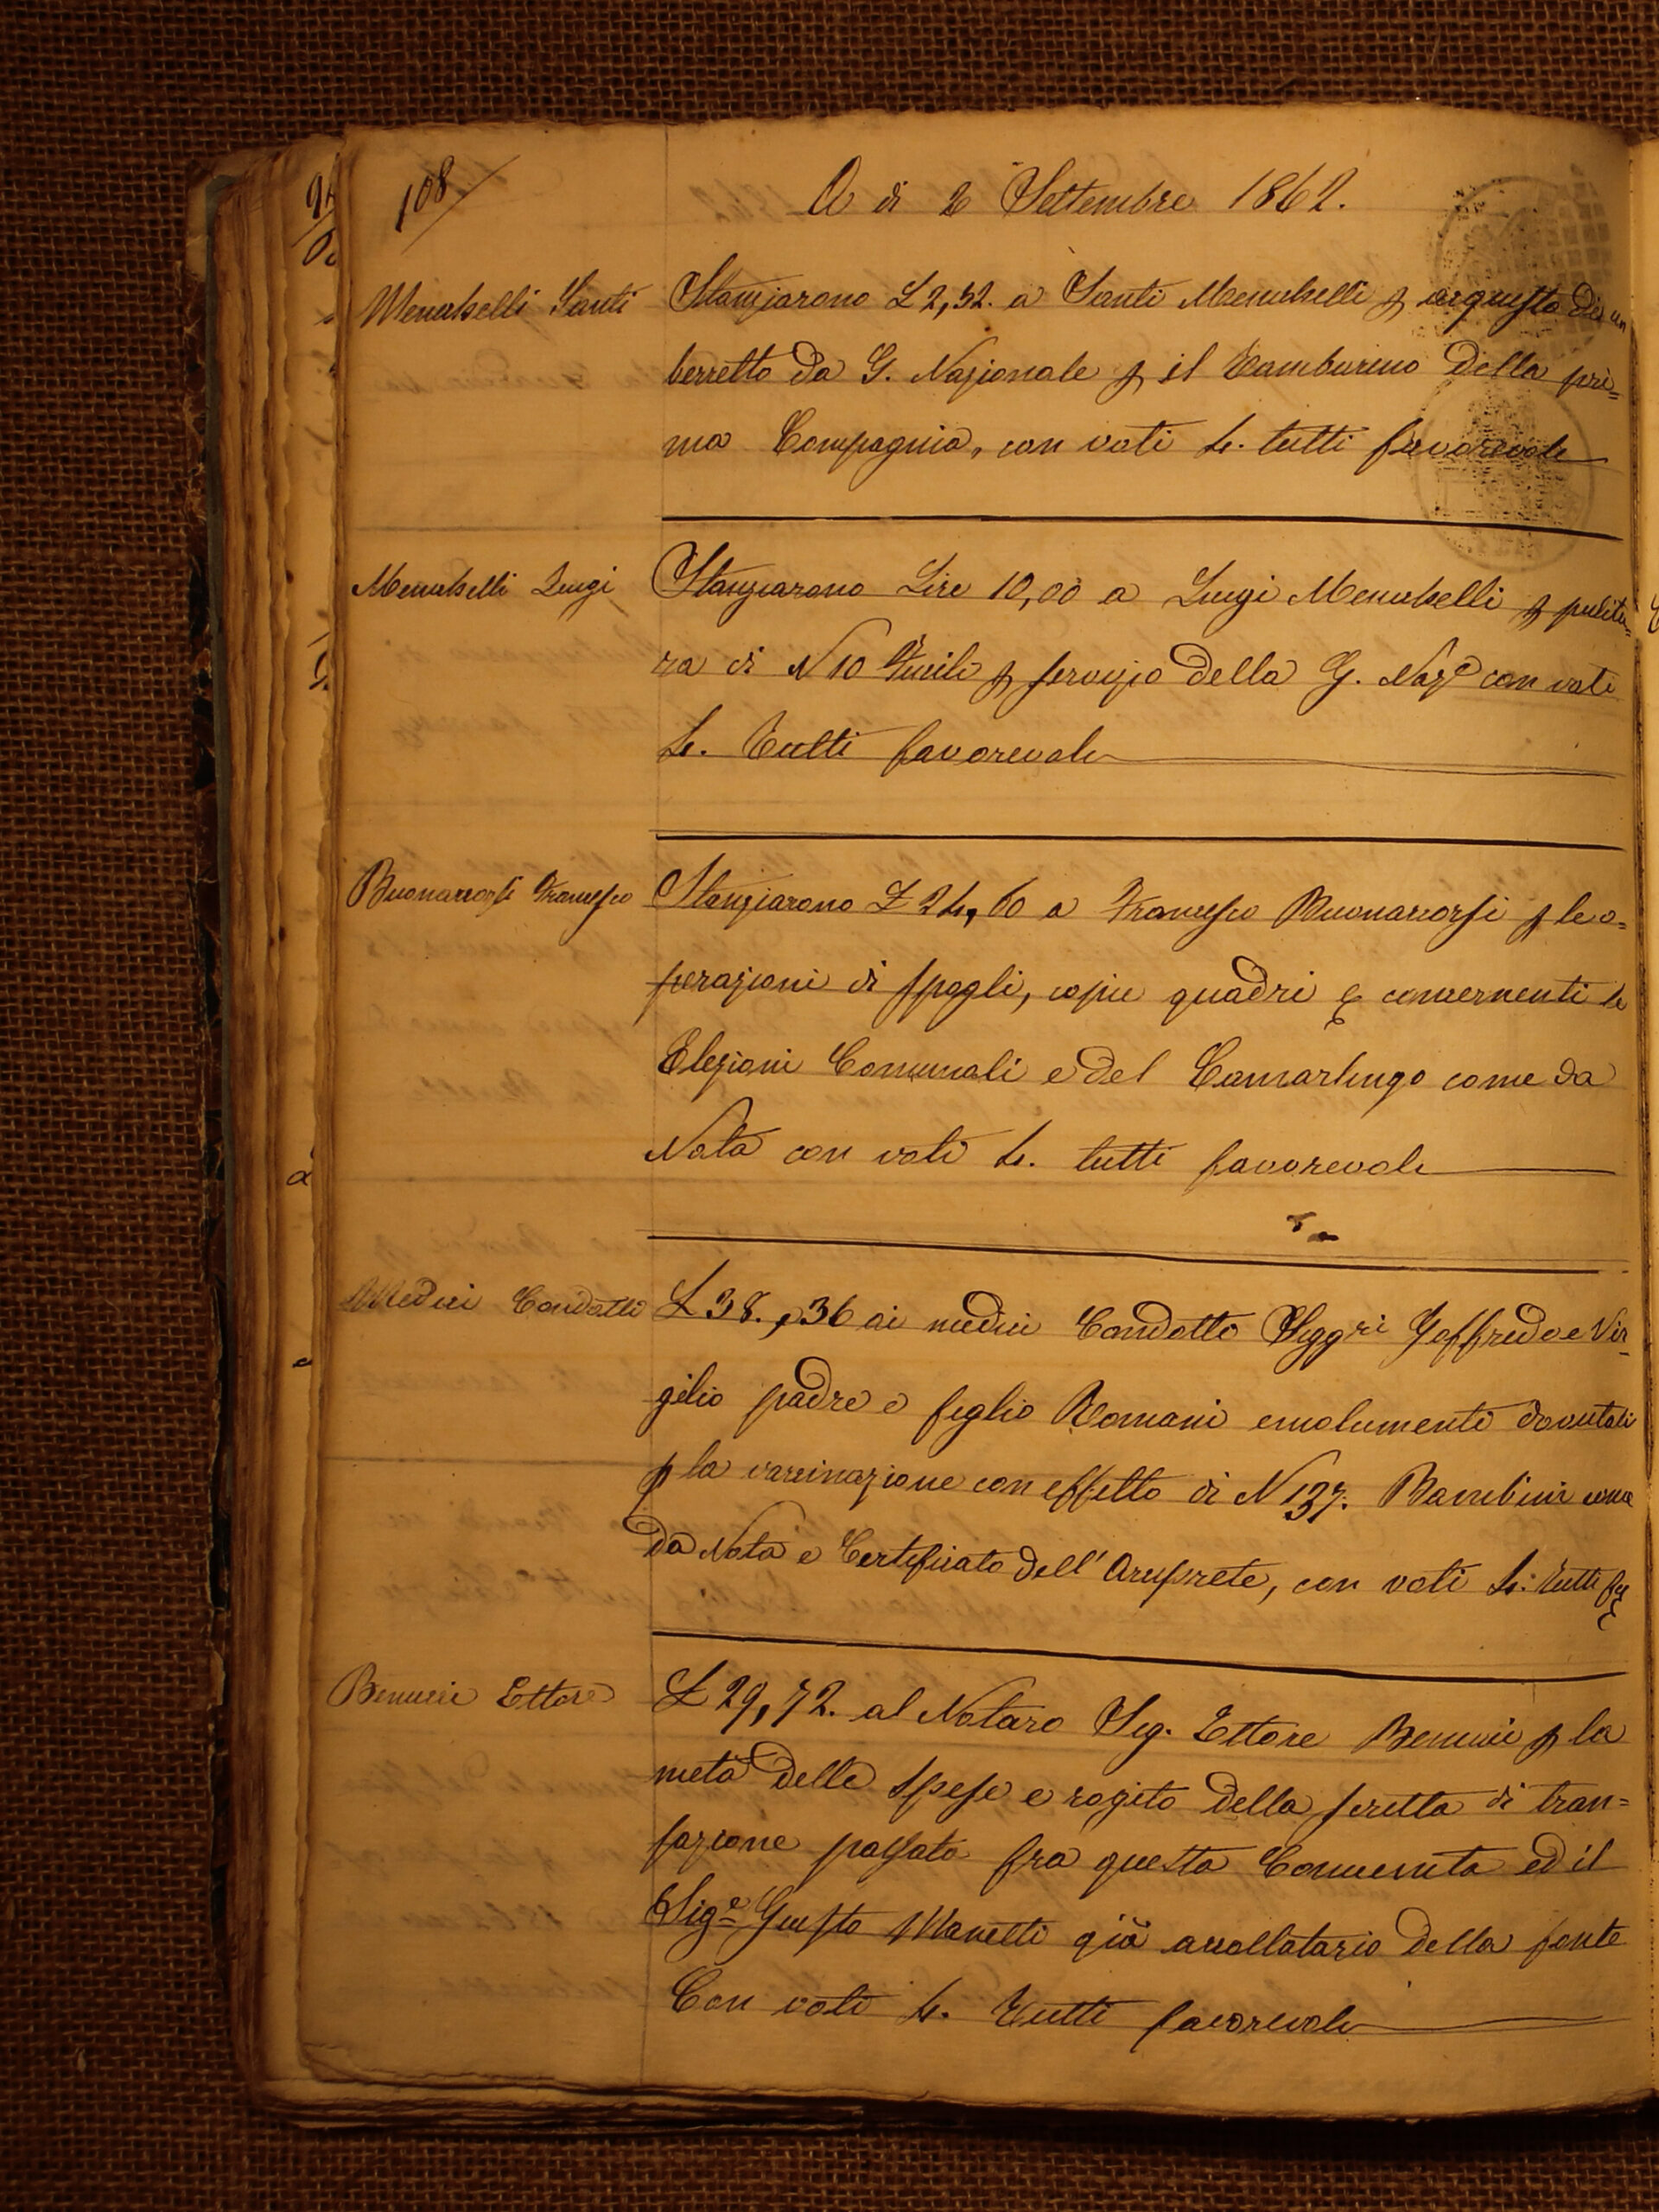 108
A di 2 Settembre 1862.
Menabelli Santi
Stanziarono £ 2,52. a Santi Menabelli p acquisto di un
berretto da G. Nazionale p il Tamburino della pri=
ma Compagnia, con voti 4. tutti favorevoli
Menabelli Luigi
Stanziarono Lire 10,00 a Luigi Menabelli p pulitu=
ra di N 10 Fucili p servizio della G. Naz.e con voti
4. Tutti favorevoli
Buonarrorsi Francesco
Stanziarono £ 24,60 a Francesco Buonarrorsi p le o=
perazioni di spogli, copie quadri e concernenti le
Elezioni Comunali e del Camarlingo come da
Nota con voti 4. tutti favorevoli
Medici Condotti
£ 38.,36 ai medici Condotti Siggri Goffredo e Vir
gilio padre e figlio Romani emolumenti dovutoli
p la vaccinazione con effetto di N 137. Bambini come
da Nota e Certificato dell' Arciprete, con voti 4. tutti
Benucci Ettore
£ 29,72. al Notaro Sig. Ettore Benucci p la
metà delle spese e rogito della scritta di tran=
sazione passata fra questa Comunità ed il
Sig.e Giusto Manetti già accollatario della fonte
Con voti 4. Tutti favorevoli